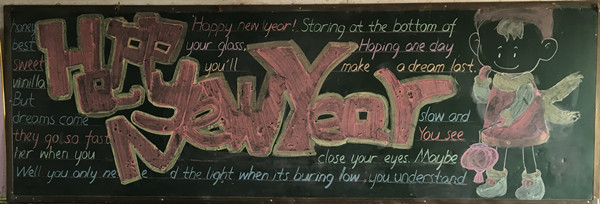 Happy New Year
honey Happy new year! Staring at the bottom of
best your glass, Hoping one day
sweet you'll make a dream last.
vanilla
But
dreams come slow and
they go so fast You see
her when you close your eyes. Maybe
Well you only ne d the light when its buring low, you understand